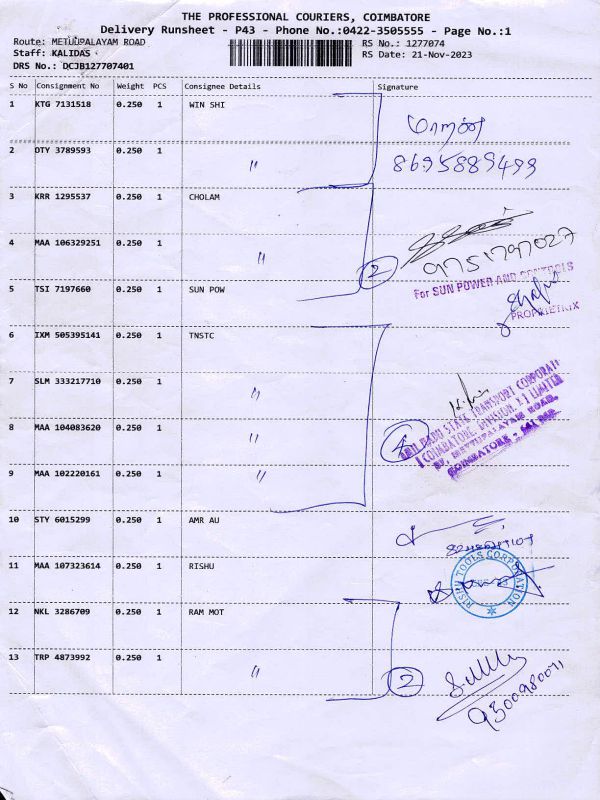 THE PROFESSIONAL COURIERS, COIMBATORE
Delivery Runsheet - P43 - Phone No.:0422-3505555 - Page No.:1
Route: METUUPALAYAM ROAD
RS No.: 1277074
Staff: KALIDAS
RS Date: 21-Nov-2023
DRS No.: DCJB127707401
S No Consignment No Weight PCS Consignee Details Signature
1 KTG 7131518 0.250 1 WIN SHI
மாறன்
2 DTY 3789593 0.250 1 "
8695889499
3 KRR 1295537 0.250 1 CHOLAM
4 MAA 106329251 0.250 1 " 2
9751797027
5 TSI 7197660 0.250 1 SUN POW
For SUN POWER AND CONTROLS
PROPRIETRIX
6 IXM 505395141 0.250 1 TNSTC
7 SLM 333217710 0.250 1 "
TAMIL NADU STATE TRANSPORT CORPORATI
8 MAA 104083620 0.250 1 " 4
( COIMBATORE DIVISION. I ) LIMITED
37, METTUPALAYAM ROAD,
9 MAA 102220161 0.250 1 "
COIMBATORE - 641
10 STY 6015299 0.250 1 AMR AU
11 MAA 107323614 0.250 1 RISHU
RISHU TOOLS CORPORATION
12 NKL 3286709 0.250 1 RAM MOT
13 TRP 4873992 0.250 1 " 2
9300980071